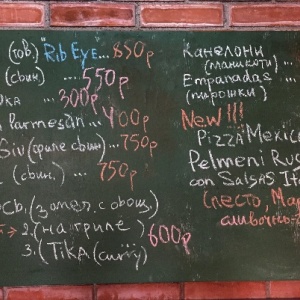 (гов.) "Rib Eye... 850р
(свин) ... 550р
300р
Parmesan 400р
(филе свин) ... 750р
(свин.) ... 750р
(замел. с овощ.)
2. (на гриле) 600р
3. (Tika (curry)
Канелони
(маникоти)
Empanadas ...
(пирошки)
New!!!
Pizza Mexico
Pelmeni Rus
con Salsas Ita
(песто, Мар
сливочно-